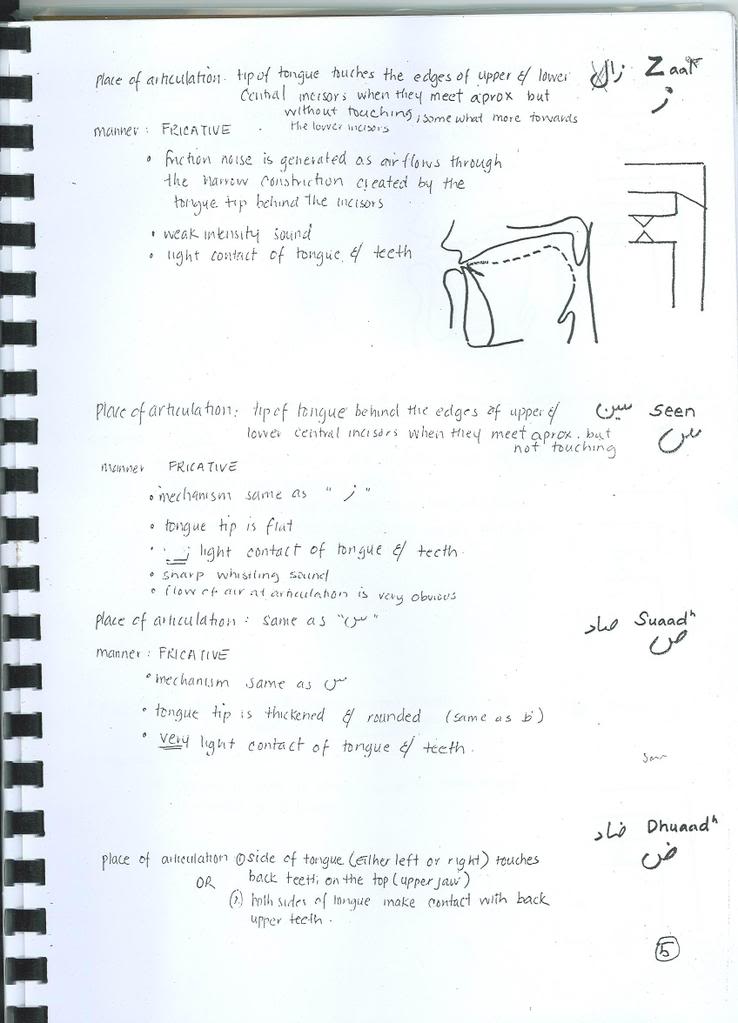 place of articulation. tip of tongue touches the edges of upper & lower زال Zaal
central incisors when they meet aprox but ز
without touching, some what more towards
the lower incisors
manner: FRICATIVE
• friction noise is generated as air flows through
the narrow constriction created by the
tongue tip behind the incisors
• weak intensity sound
• light contact of tongue & teeth
place of articulation: tip of tongue behind the edges of upper & سين seen
lower central incisors when they meet aprox. but س
not touching
manner FRICATIVE
• mechanism same as " ز "
• tongue tip is flat
• light contact of tongue & teeth.
• sharp whistling sound
• flow of air at articulation is very obvious
place of articulation: same as "س" صاد Suaadh
ص
manner: FRICATIVE
• mechanism same as س
• tongue tip is thickened & rounded (same as ط)
• very light contact of tongue & teeth.
ضاد Dhuaadh
ض
place of articulation ① side of tongue (either left or right) touches
OR back teeth on the top (upper jaw)
(2) both sides of tongue make contact with back
upper teeth.
5